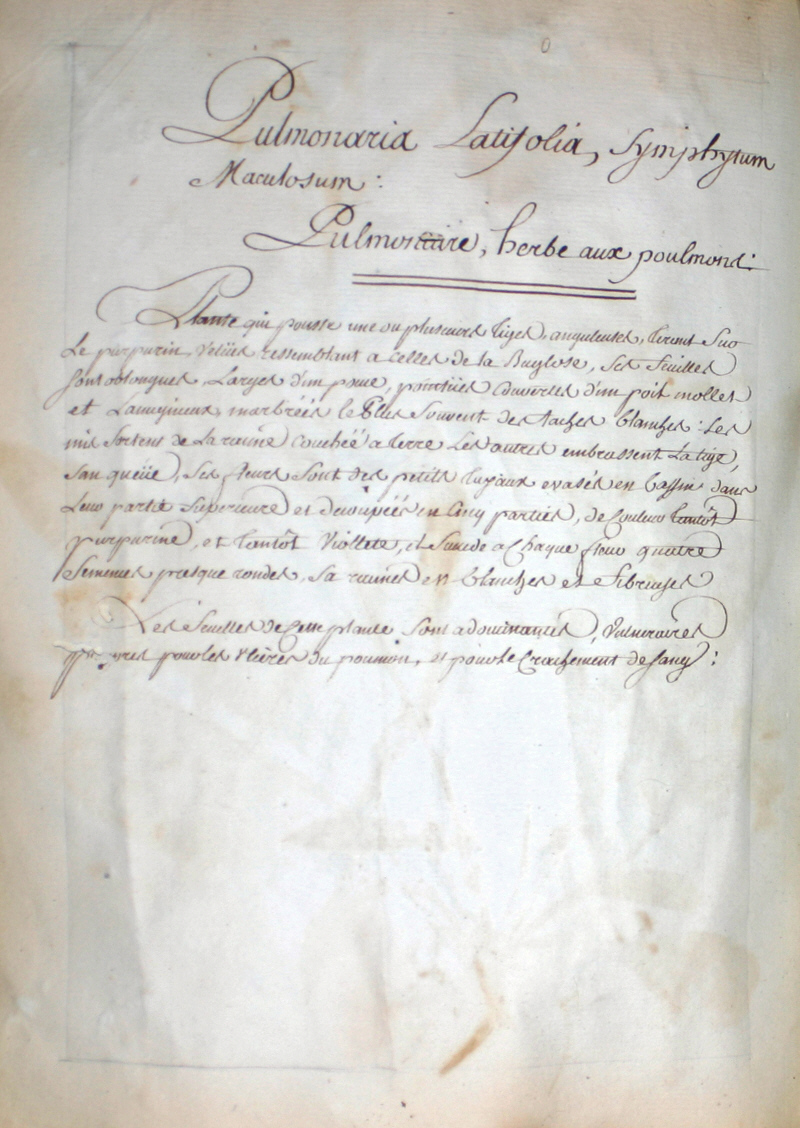 Pulmonaria Latifolia, Symphytum
Maculosum :
Pulmonaire, herbe aux poulmons :
Plante qui pousse une ou plusieurs tiges, anguleuses, tirant sur
Le purpurin, velües ressemblant a celles de la Buglose, Ses feuilles
sont oblongues, Larges d'un pouce, pointües couvertes d'un poil mollet
et Lanugineux, marbréés le Plus Souvent des taches blanches : Les
unes sortent de La racine couchéé a terre Les autres embrassent La tige,
San queüe, Ses fleurs Sont des petits tuyaux evasés en bassin dans
Leur partie Superieure et decoupéés en Cinq parties, de Couleur tantôt
purpurine, et tantôt Viollete, il Succede a Chaque fleur quatre
Semences presque rondes, Sa racine est blanche et fibreuse
Les feuilles de Cette plante Sont adoucissantes, Vulneraires
propres pour les Ulceres du poumon, et pour le Crachement de Sang :